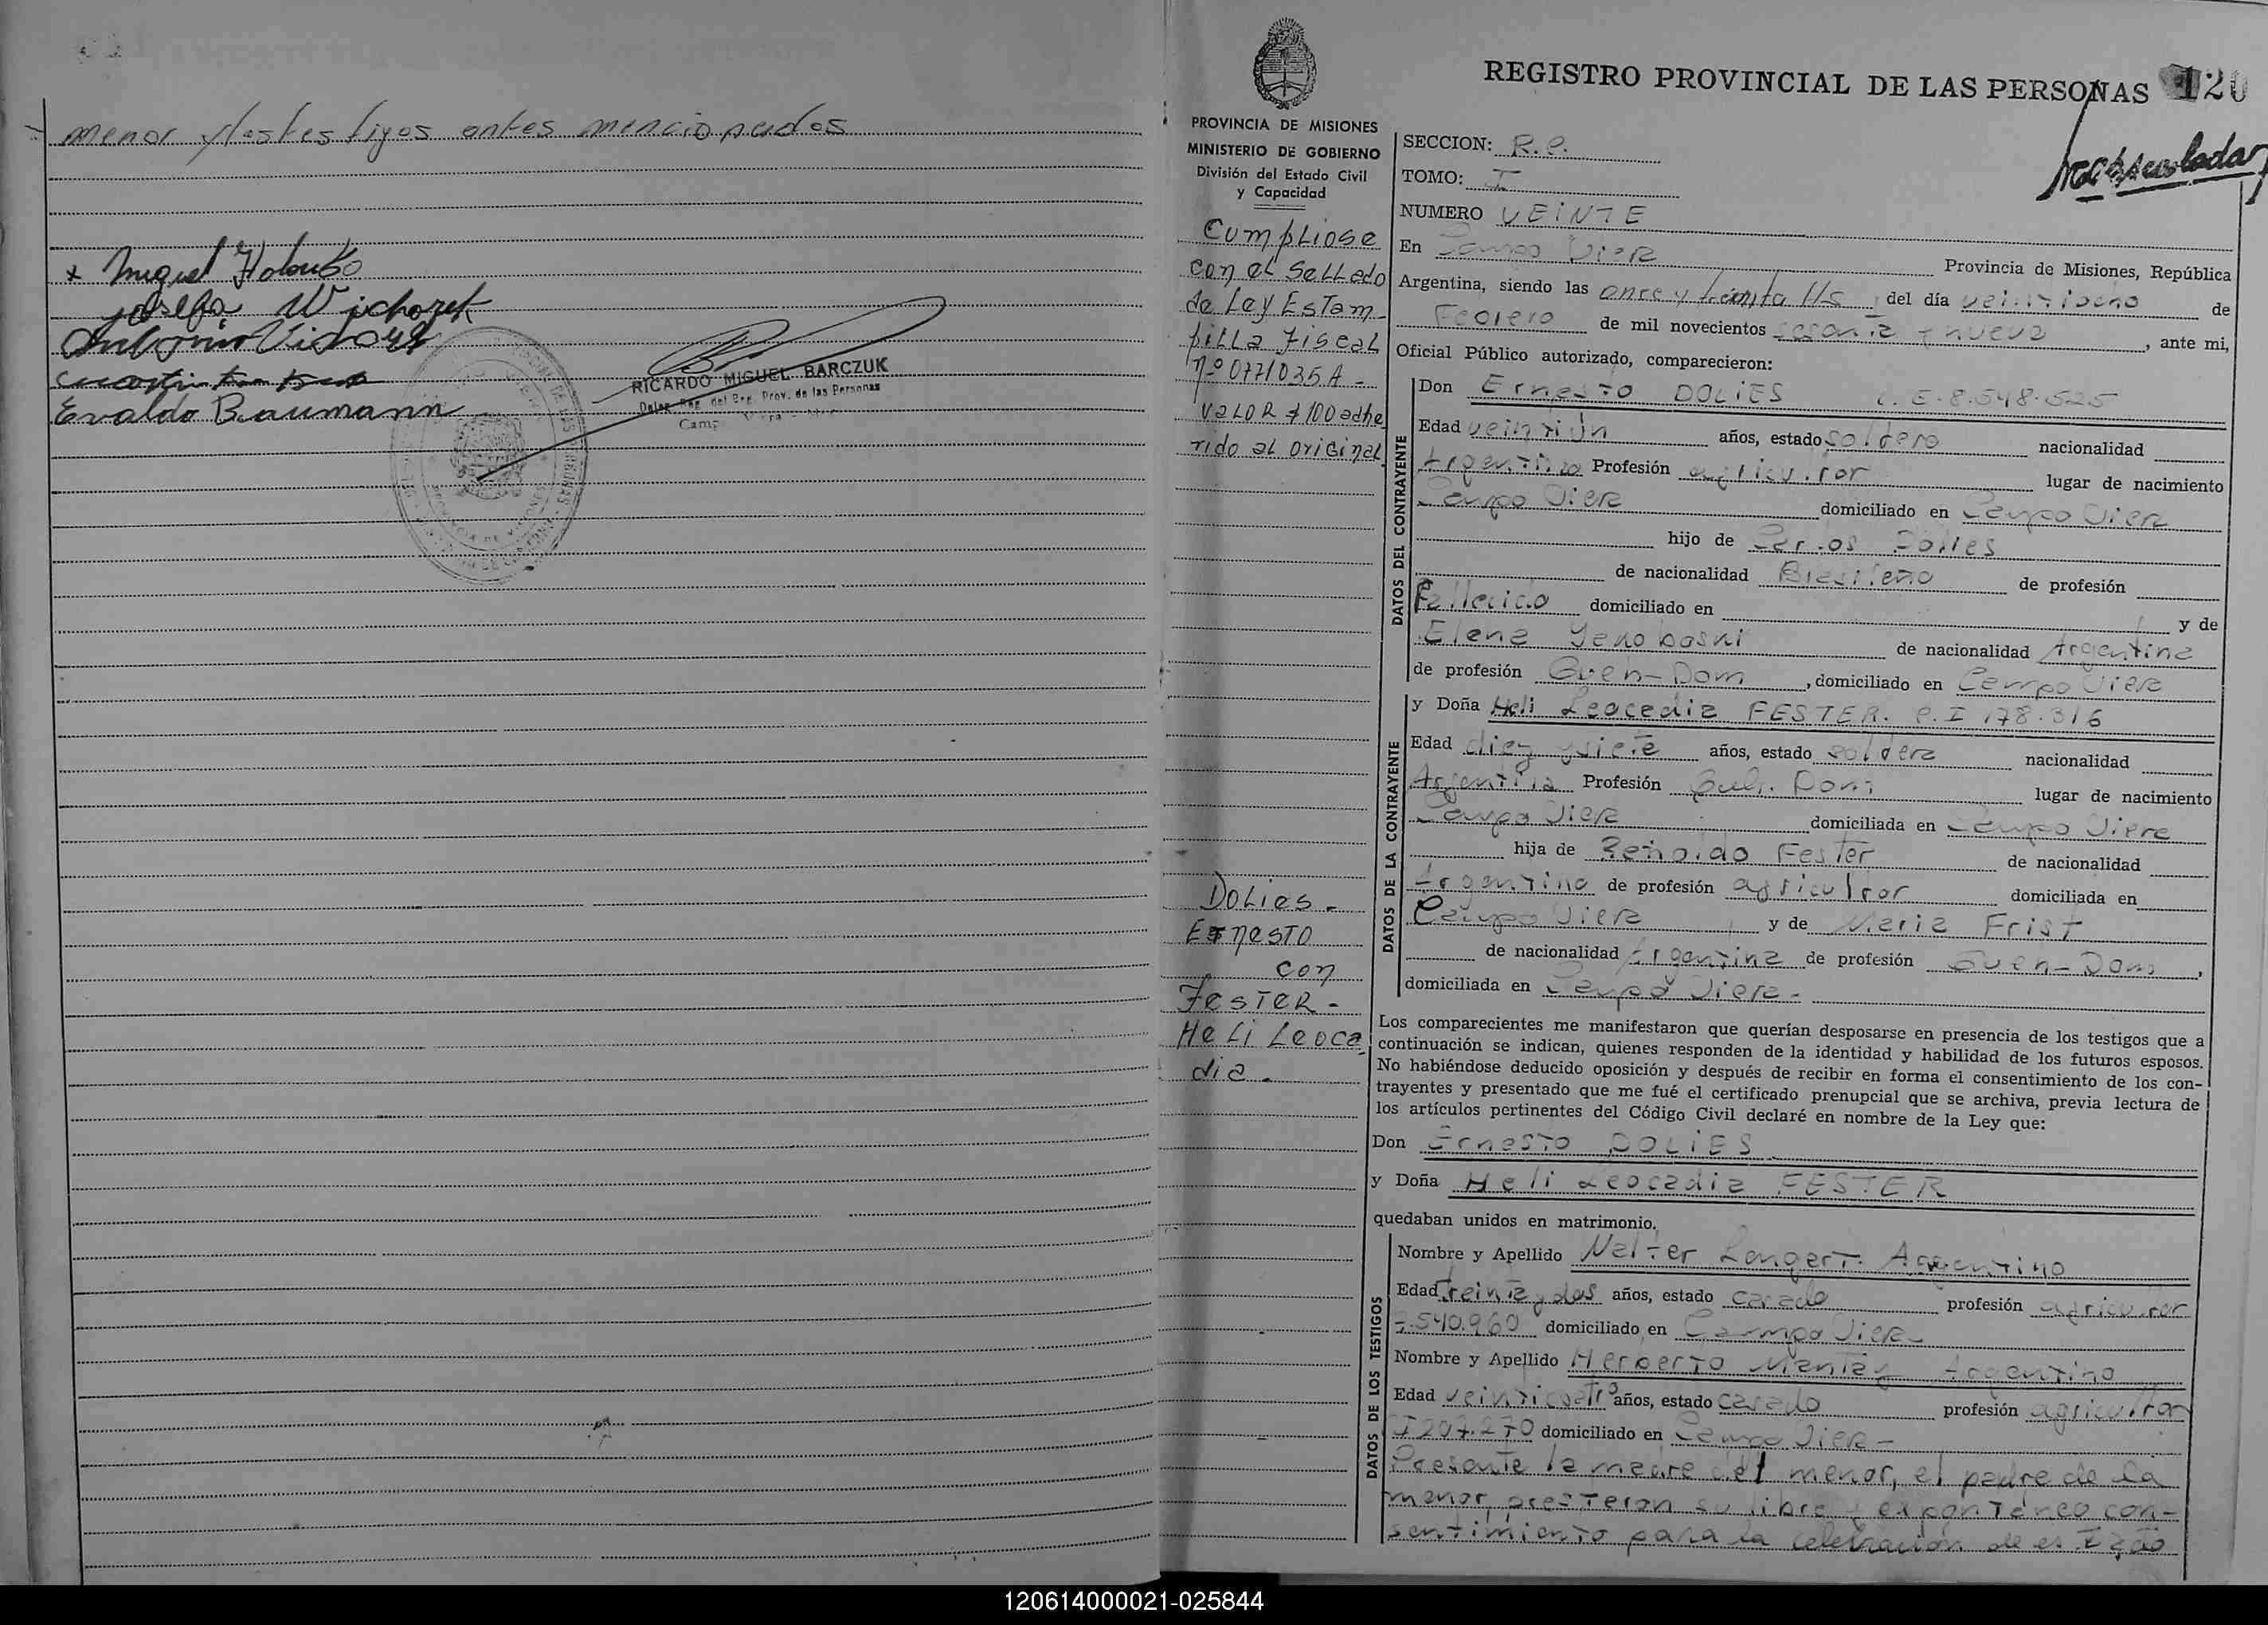 menor y los testigos antes mencionados
x Miguel Holowko
Josefa Wichozek
Antonio
Evaldo Baumann
RICARDO MIGUEL BARCZUK
Deleg. Reg. del Reg. Prov. de las Personas
REGISTRO PROVINCIAL DE LAS PERSONAS 120
PROVINCIA DE MISIONES
MINISTERIO DE GOBIERNO
División del Estado Civil
y Capacidad
Cumpliose
con el Sellado
de Ley Estam-
pilla Fiscal
nº 0771035 A -
Valor $ 100 adhe
rido al original
Dolies -
Ernesto
con
FESTER -
Heli Leoca
dia -
SECCION: R.P.
TOMO: I
NUMERO VEINTE
En Campo Viera Provincia de Misiones, República
Argentina, siendo las once y treinta Hs, del día veintiocho de
Febrero de mil novecientos sesenta y nueve, ante mi,
Oficial Público autorizado, comparecieron:
DATOS DEL CONTRAYENTE
Don Ernesto DOLIES L.E. 8.548.525
Edad veintiún años, estado soltero nacionalidad
Argentino Profesión agricultor lugar de nacimiento
Campo Viera domiciliado en Campo Viera
hijo de Carlos Dolies
de nacionalidad Brasileño de profesión
Fallecido domiciliado en y de
Elena Yenobaski de nacionalidad Argentina
de profesión Queh-Dom, domiciliado en Campo Viera
DATOS DE LA CONTRAYENTE
y Doña Heli Leocadia FESTER. C.I 178.316
Edad diez y siete años, estado soltera nacionalidad
Argentina Profesión Queh. Dom lugar de nacimiento
Campo Viera domiciliada en Campo Viera
hija de Renoldo Fester de nacionalidad
Argentino de profesión agricultor domiciliada en
Campo Viera y de Maria Frist
de nacionalidad Argentina de profesión Queh-Dom,
domiciliada en Campo Viera-
Los comparecientes me manifestaron que querían desposarse en presencia de los testigos que a
continuación se indican, quienes responden de la identidad y habilidad de los futuros esposos.
No habiéndose deducido oposición y después de recibir en forma el consentimiento de los con-
trayentes y presentado que me fué el certificado prenupcial que se archiva, previa lectura de
los artículos pertinentes del Código Civil declaré en nombre de la Ley que:
Don Ernesto DOLIES
y Doña Heli Leocadia FESTER
quedaban unidos en matrimonio.
DATOS DE LOS TESTIGOS
Nombre y Apellido Walter Langert. Argentino
Edad treinta y dos años, estado casado profesión agricultor
7.540.960 domiciliado en Campo Viera-
Nombre y Apellido Herberto Mantey Argentino
Edad veinticuatro años, estado casado profesión agricultor
I 207.270 domiciliado en Campo Viera-
Presente la madre del menor, el padre de la
menor, prestaron su libre y expontaneo con-
sentimiento para la celebración de es
120614000021-025844